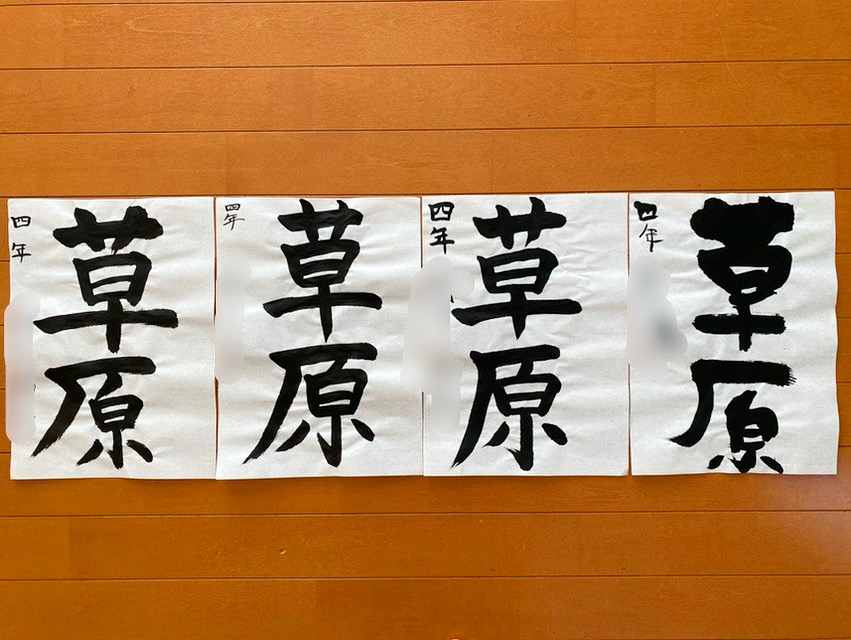 四年
草原
四年
草原
四年
草原
四年
草原